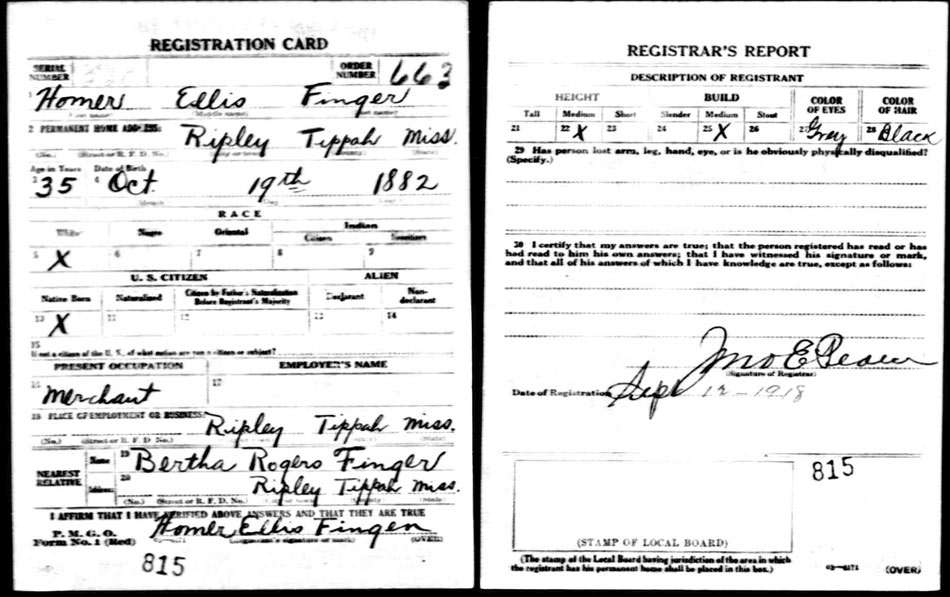 REGISTRATION CARD
SERIAL NUMBER
ORDER NUMBER 663
1 Homer Ellis Finger
(First name) (Middle name) (Last name)
2 PERMANENT HOME ADDRESS:
Ripley Tippah Miss.
(No.) (Street or R. F. D. No.) (City or town) (County) (State)
Age in Years Date of Birth
3 35 4 Oct. 19th 1882
Month Day Year
RACE
White Negro Oriental Indian
Citizen Noncitizen
5 X 6 7 8 9
U. S. CITIZEN ALIEN
Native Born Naturalized Citizen by Father's Naturalization Before Registrant's Majority Declarant Non-declarant
10 X 11 12 13 14
15
If not a citizen of the U. S., of what nation are you a citizen or subject?
PRESENT OCCUPATION EMPLOYER'S NAME
16 Merchant 17
18 PLACE OF EMPLOYMENT OR BUSINESS:
Ripley Tippah Miss.
(No.) (Street or R. F. D. No.) (State)
NEAREST RELATIVE
Name 19 Bertha Rogers Finger
Address 20 Ripley Tippah Miss.
(No.) (Street or R. F. D. No.) (City or town) (County) (State)
I AFFIRM THAT I HAVE VERIFIED ABOVE ANSWERS AND THAT THEY ARE TRUE
P. M. G. O.
Form No. 1 (Red) Homer Ellis Finger
(Registrant's signature or mark) (OVER)
815
REGISTRAR'S REPORT
DESCRIPTION OF REGISTRANT
HEIGHT BUILD COLOR OF EYES COLOR OF HAIR
Tall Medium Short Slender Medium Stout
21 22 X 23 24 25 X 26 27 Grey 28 Black
29 Has person lost arm, leg, hand, eye, or is he obviously physically disqualified?
(Specify.)
30 I certify that my answers are true; that the person registered has read or has
had read to him his own answers; that I have witnessed his signature or mark,
and that all of his answers of which I have knowledge are true, except as follows:
Jno E
(Signature of Registrar)
Date of Registration Sept 12-1918
815
(STAMP OF LOCAL BOARD)
(The stamp of the Local Board having jurisdiction of the area in which
the registrant has his permanent home shall be placed in this box.)
03-6171 (OVER)